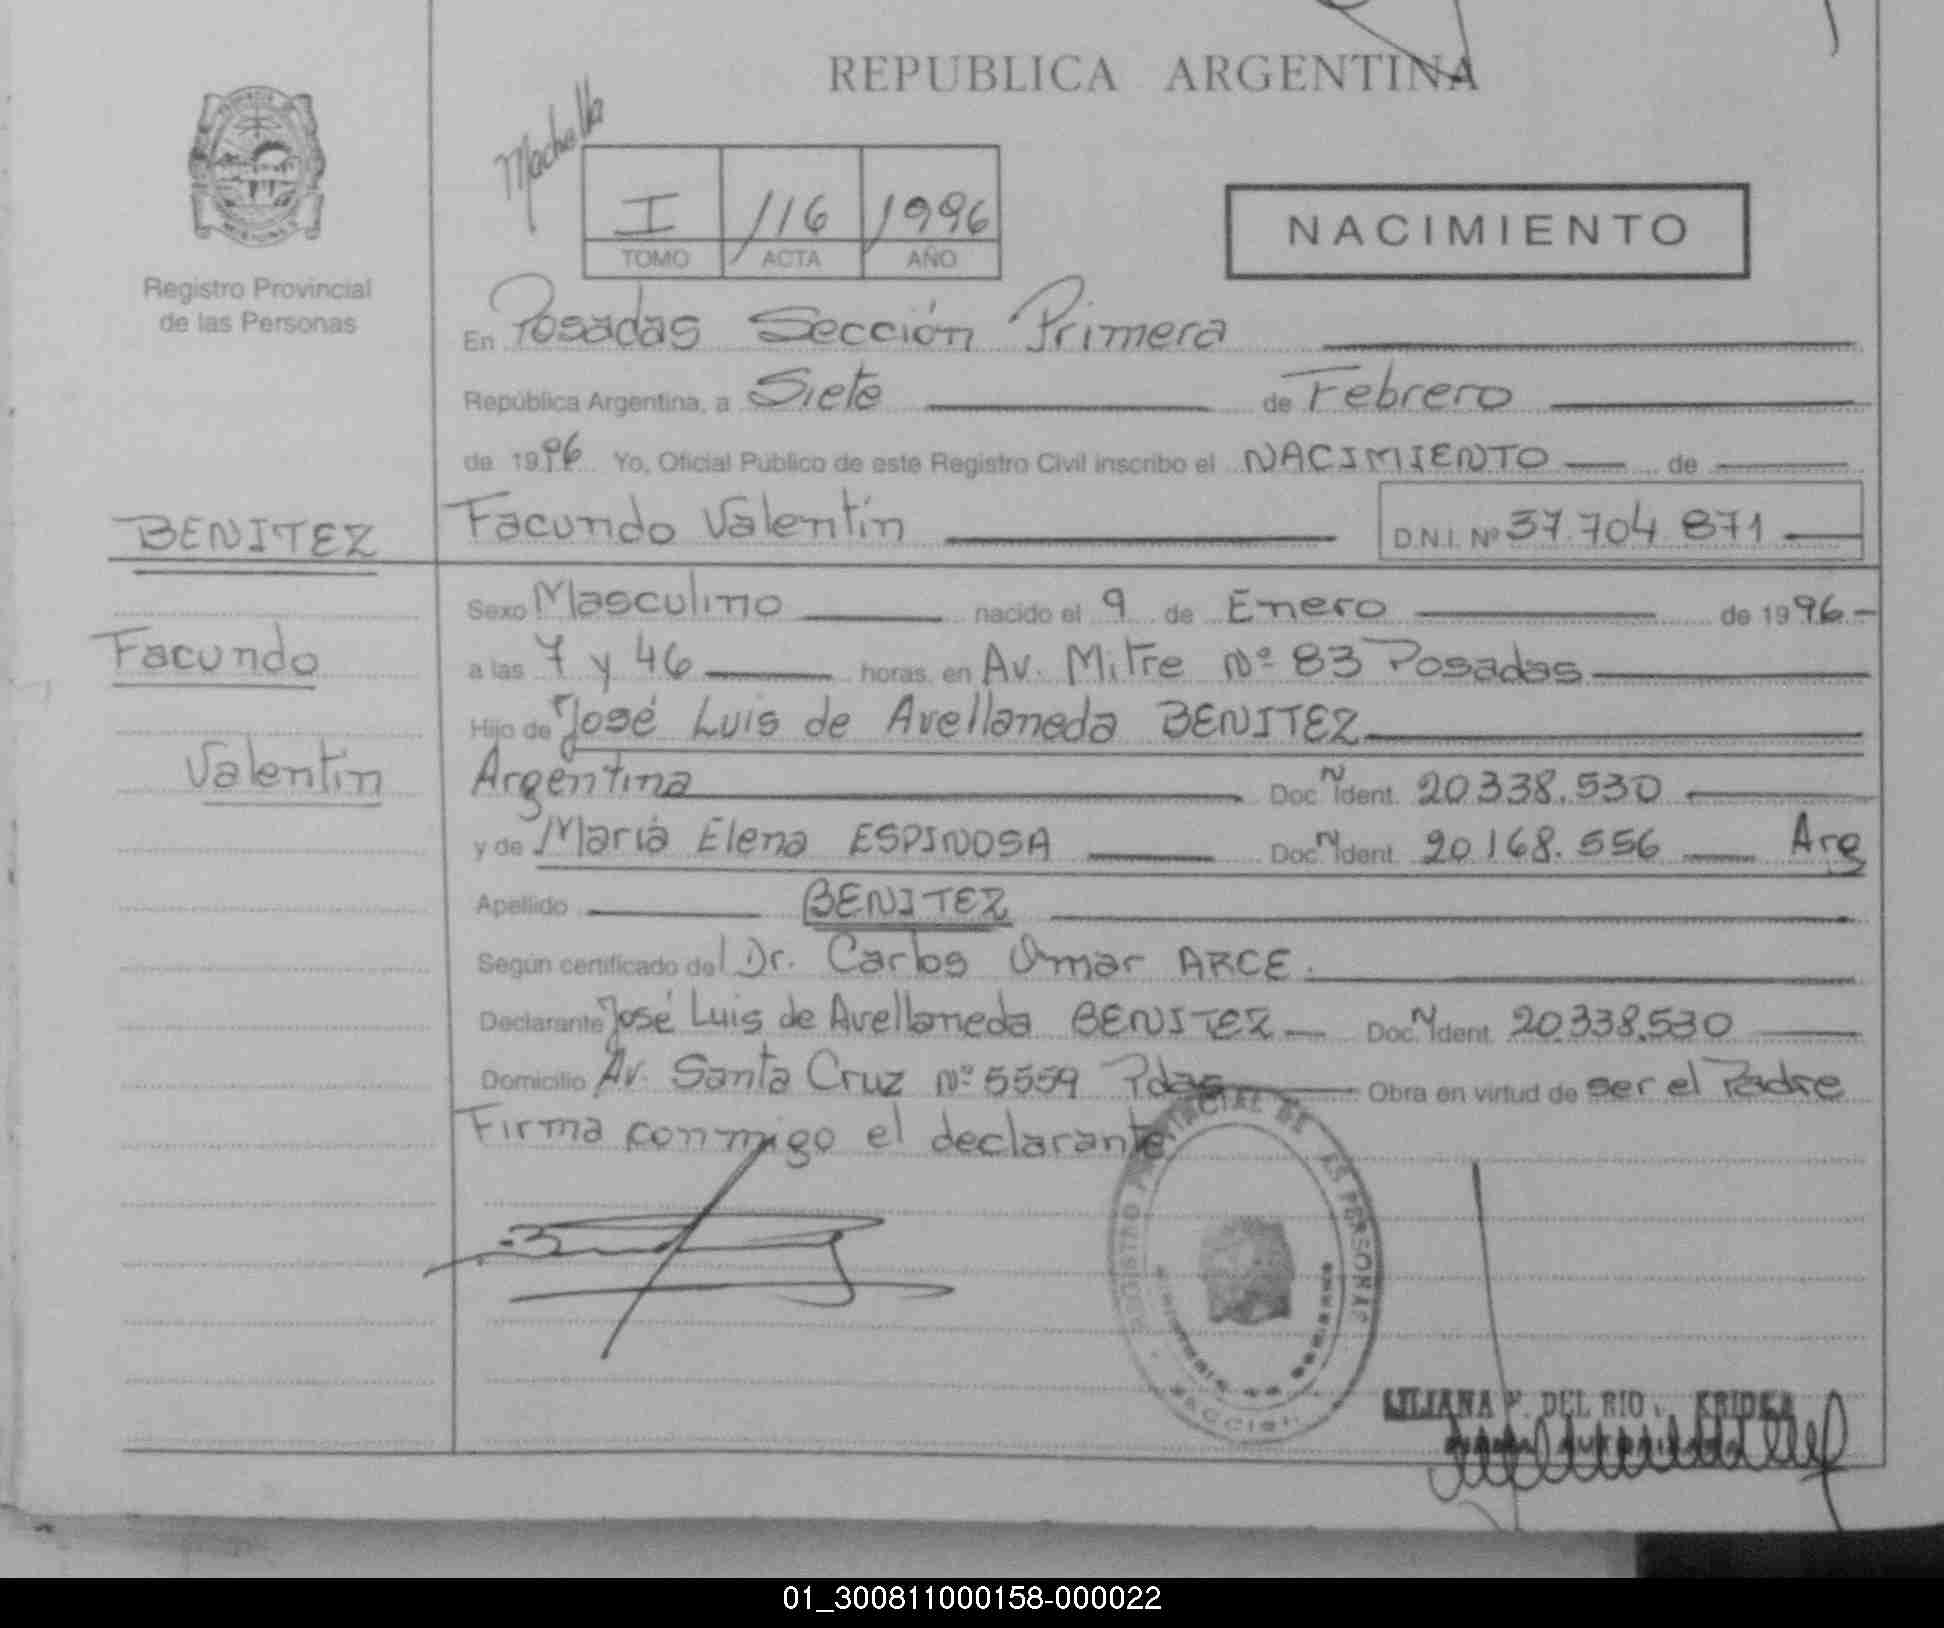 REPUBLICA ARGENTINA
I 116 1996
TOMO ACTA AÑO
NACIMIENTO
Registro Provincial
de las Personas
En Posadas Sección Primera
República Argentina, a Siete de Febrero
de 1996 Yo, Oficial Público de este Registro Civil inscribo el NACIMIENTO de
BENITEZ
Facundo Valentín D.N.I. Nº 37.704.871
Sexo Masculino nacido el 9 de Enero de 1996
Facundo
a las 7 y 46 horas, en Av. Mitre Nº 83 Posadas
Hijo de José Luis de Avellaneda BENITEZ
Valentín
Argentina Doc. N Ident. 20.338.530
y de María Elena ESPINOSA Doc. N Ident. 20.168.556 Arg
Apellido BENITEZ
Según certificado del Dr. Carlos Omar ARCE.
Declarante José Luis de Avellaneda BENITEZ Doc. N Ident. 20.338.530
Domicilio Av. Santa Cruz Nº 5559 Pdas Obra en virtud de ser el Padre
Firma conmigo el declarante
LILIANA DEL RIO
01_300811000158-000022